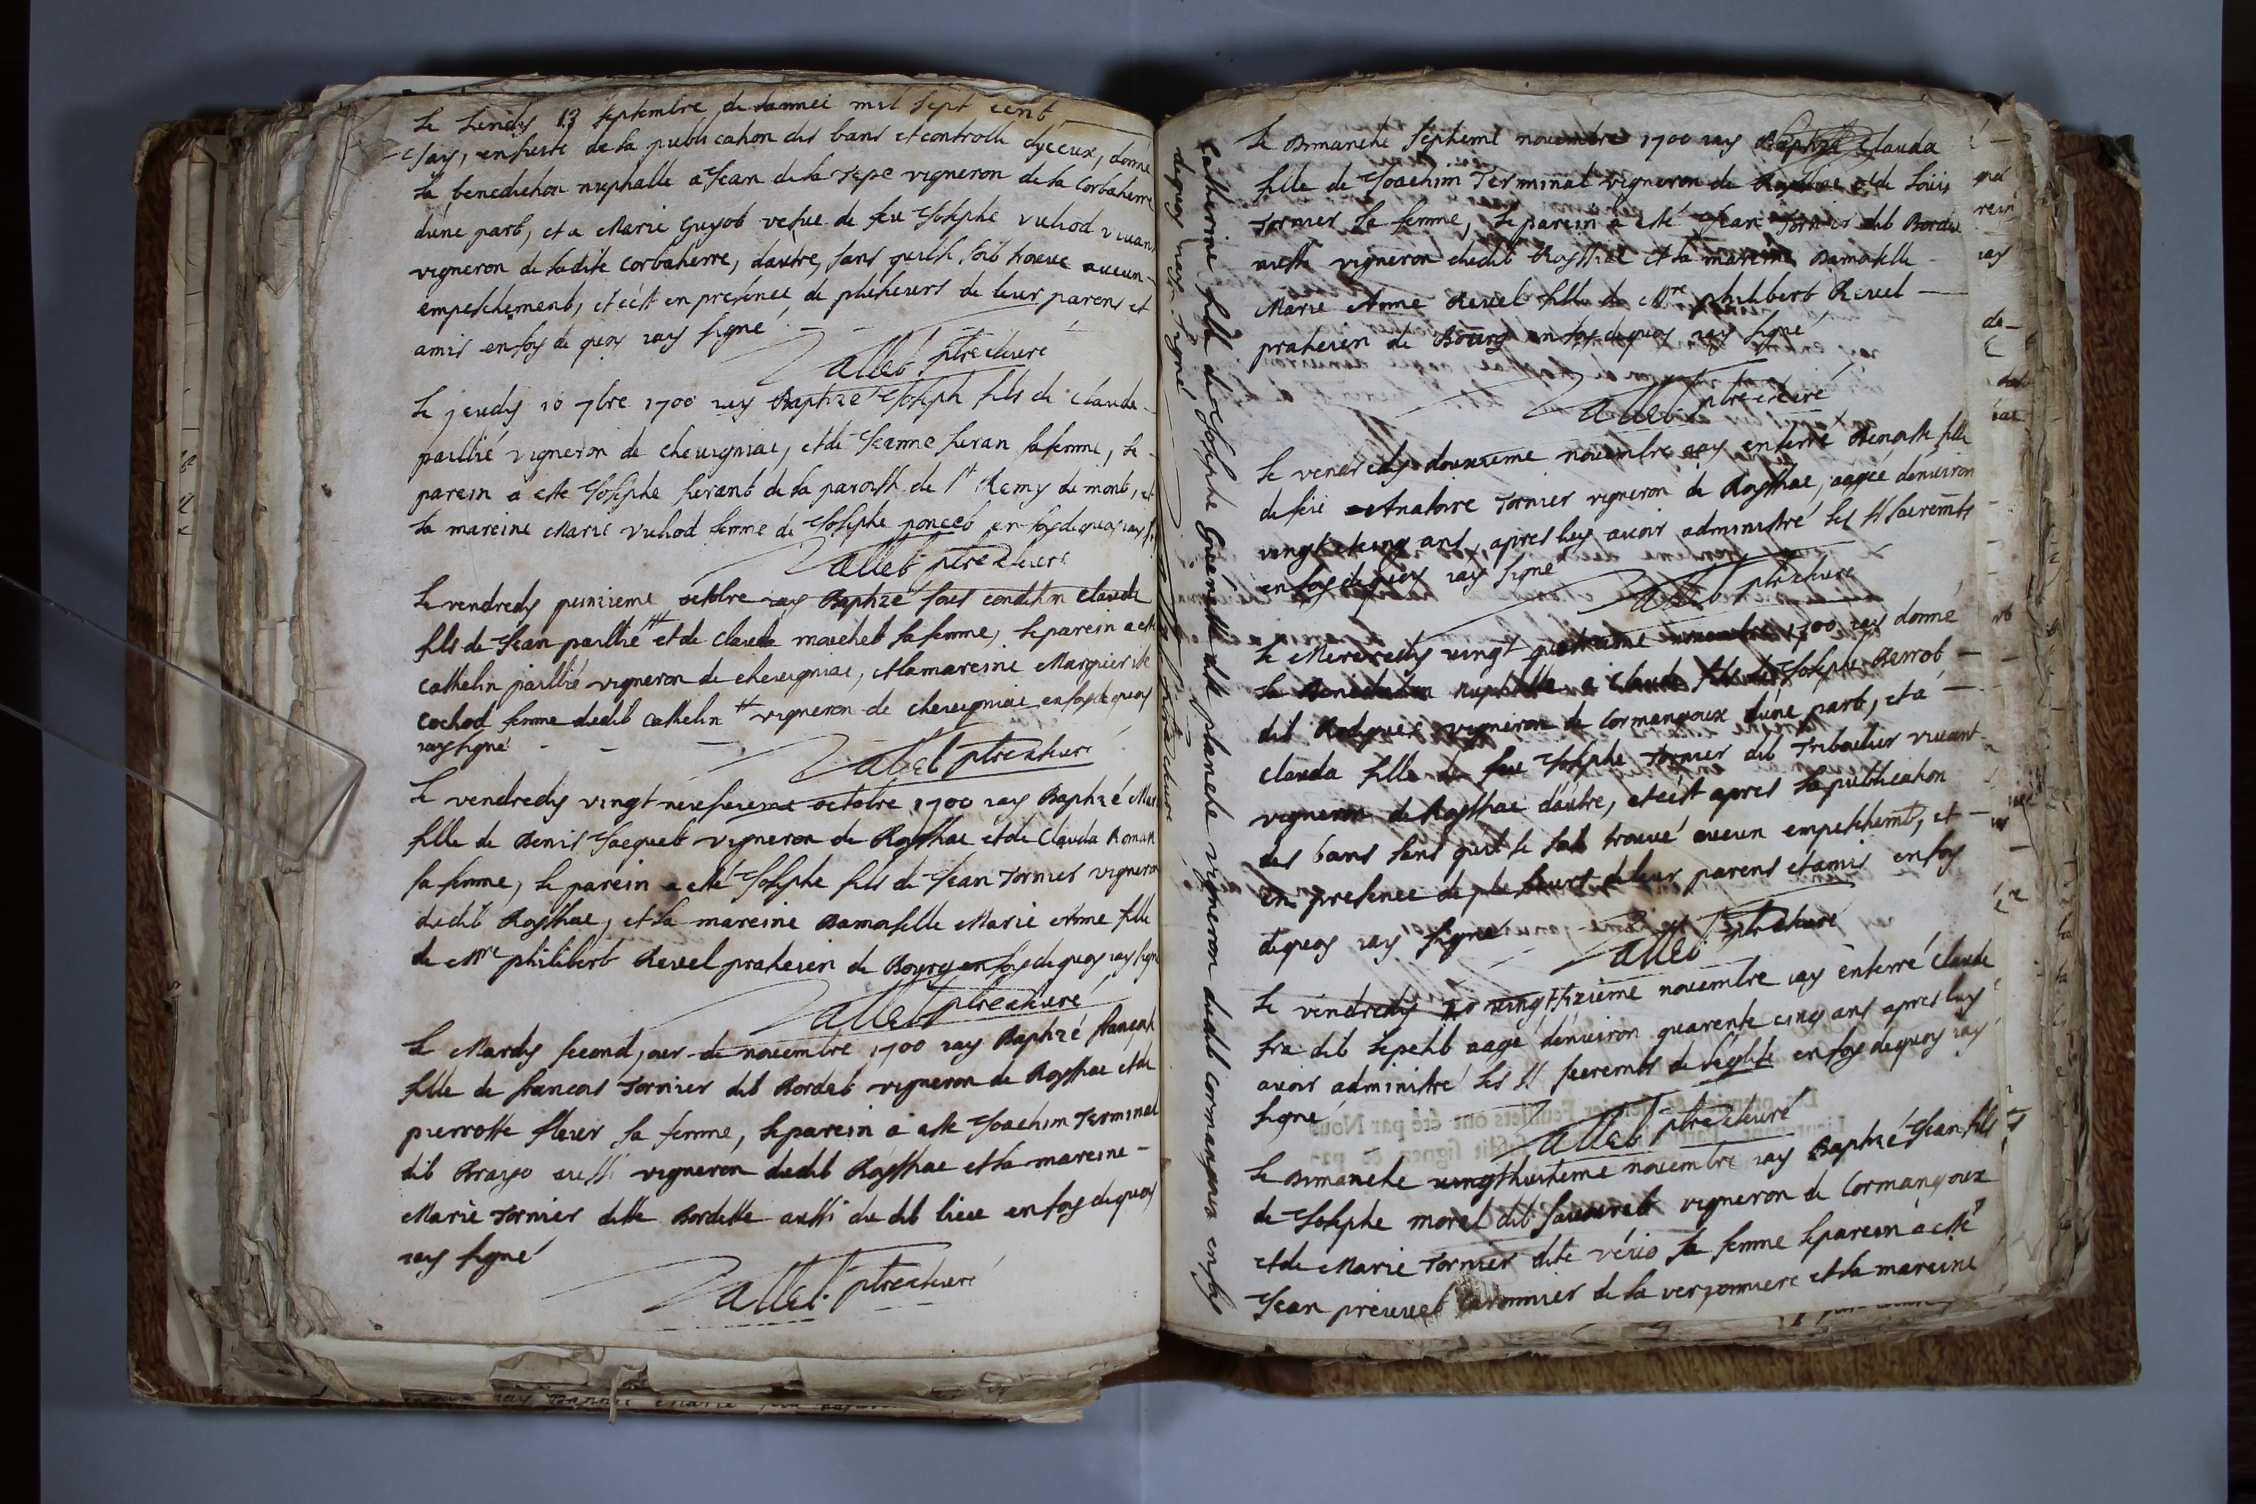 Le Lundy 13 septembre de lannee mil sept cent
Jay, ensuite de la publication des bans et controlle dyceux, donné
la benediction nuptialle a Jean de la Tepe vigneron de la Corbatiere
dune part, et a Marie Guyot vefue de feu Josephe vuliod viuant
vigneron de ladite Corbatiere, dautre, sans quil se soit trouue aucun
empeschement, et cest en presence de plusieurs de leur parens et
amis en foy de quoy iay signé
Vallet ptre et curé
Le jeudy 16 7bre 1700 iay Baptizé Joseph fils de Claude
paillié vigneron de cheuigniac, et de Jeanne feran sa femme, le
parein a esté Josephe ferant de la paroisse de St Remy du mont, et
la mareine Marie vuliod femme de Josephe poncet en foy de quoy iay s.
Vallet ptre et curé
Le vendredy quinzieme octobre iay Baptizé sous condition Claude
fils de Jean paillié et de Clauda maichet sa femme, le parein a esté
Cathelin paillié vigneron de cheuigniac, et la mareine Marguerite
Cochod femme dudit Cathelin vigneron de cheuigniac en foy de quoy
iay signé
Vallet ptre et curé
Le vendredy vingt neufuieme octobre 1700 iay Baptizé
fille de Denis Jacquet vigneron de Royssiac et de Clauda Roman
sa femme, le parein a esté Josephe fils de Jean Tornier vigneron
dudit Royssiac, et la mareine Damoiselle Marie Anne fille
de Mre philibert Revel praticien de Bourg en foy de quoy iay signé
Vallet ptre et curé
Le Mardy second jour de novembre 1700 iay Baptizé françoise
fille de francois Tornier dit Bordet vigneron de Royssiac et de
pierrotte fleur sa femme, le parein a esté Joachim Terminal
dit Brayo aussi vigneron dudit Royssiac et la mareine
Marie Tornier ditte Bordette aussi du dit lieu en foy de quoy
iay signé
Vallet ptre et curé
Catherine fille de Josephe ditte planche vigneron dudit Cormangoux en foy
de quoy iay signé Vallet ptre et curé
Le Dimanche septieme novembre 1700 iay Baptizé Clauda
fille de Joachim Terminal vigneron de Royssiac et de Louise
Tornier sa femme, le parein a esté Jean Tornier dit Bordet
aussi vigneron dudit Royssiac et la mareine Damoiselle
Marie Anne Revel fille de Mre philibert Revel
praticien de Bourg en foy de quoy iay signé
Vallet ptre et curé
Le vendredy douzieme novembre iay enterré Benoiste fille
de feu Anatoire Tornier vigneron de Royssiac, aagée denuiron
vingt et cinq ans, apres luy auoir administré les SS sacremts
en foy de quoy iay signé
Vallet ptre et curé
Le Mercredy vingt quatrieme novembre 1700 iay donné
la Benediction nuptialle a Claude fils de Josephe Perrot
dit vigneron de Cormangoux dune part, et a
Clauda fille de feu Josephe Tornier dit Triboulier viuant
vigneron de Royssiac dautre, et cest apres la publication
des bans sans quil se soit trouué aucun empeschemt, et
en presence de plusieurs de leur parens et amis en foy
de quoy iay signé
Vallet ptre et curé
Le vendredy vingtsizieme novembre iay enterré Claude
fra dit lepetit aagé denuiron quarente cinq ans apres luy
auoir administré les SS sacremts de leglise en foy de quoy iay
signé
Vallet ptre et curé
Le Dimanche vingthuitieme novembre iay Baptizé Jean fils
de Josephe morel dit vigneron de Cormangoux
et de Marie Tornier dite sa femme le parein a esté
Jean preuuet de la verjonniere et la mareine